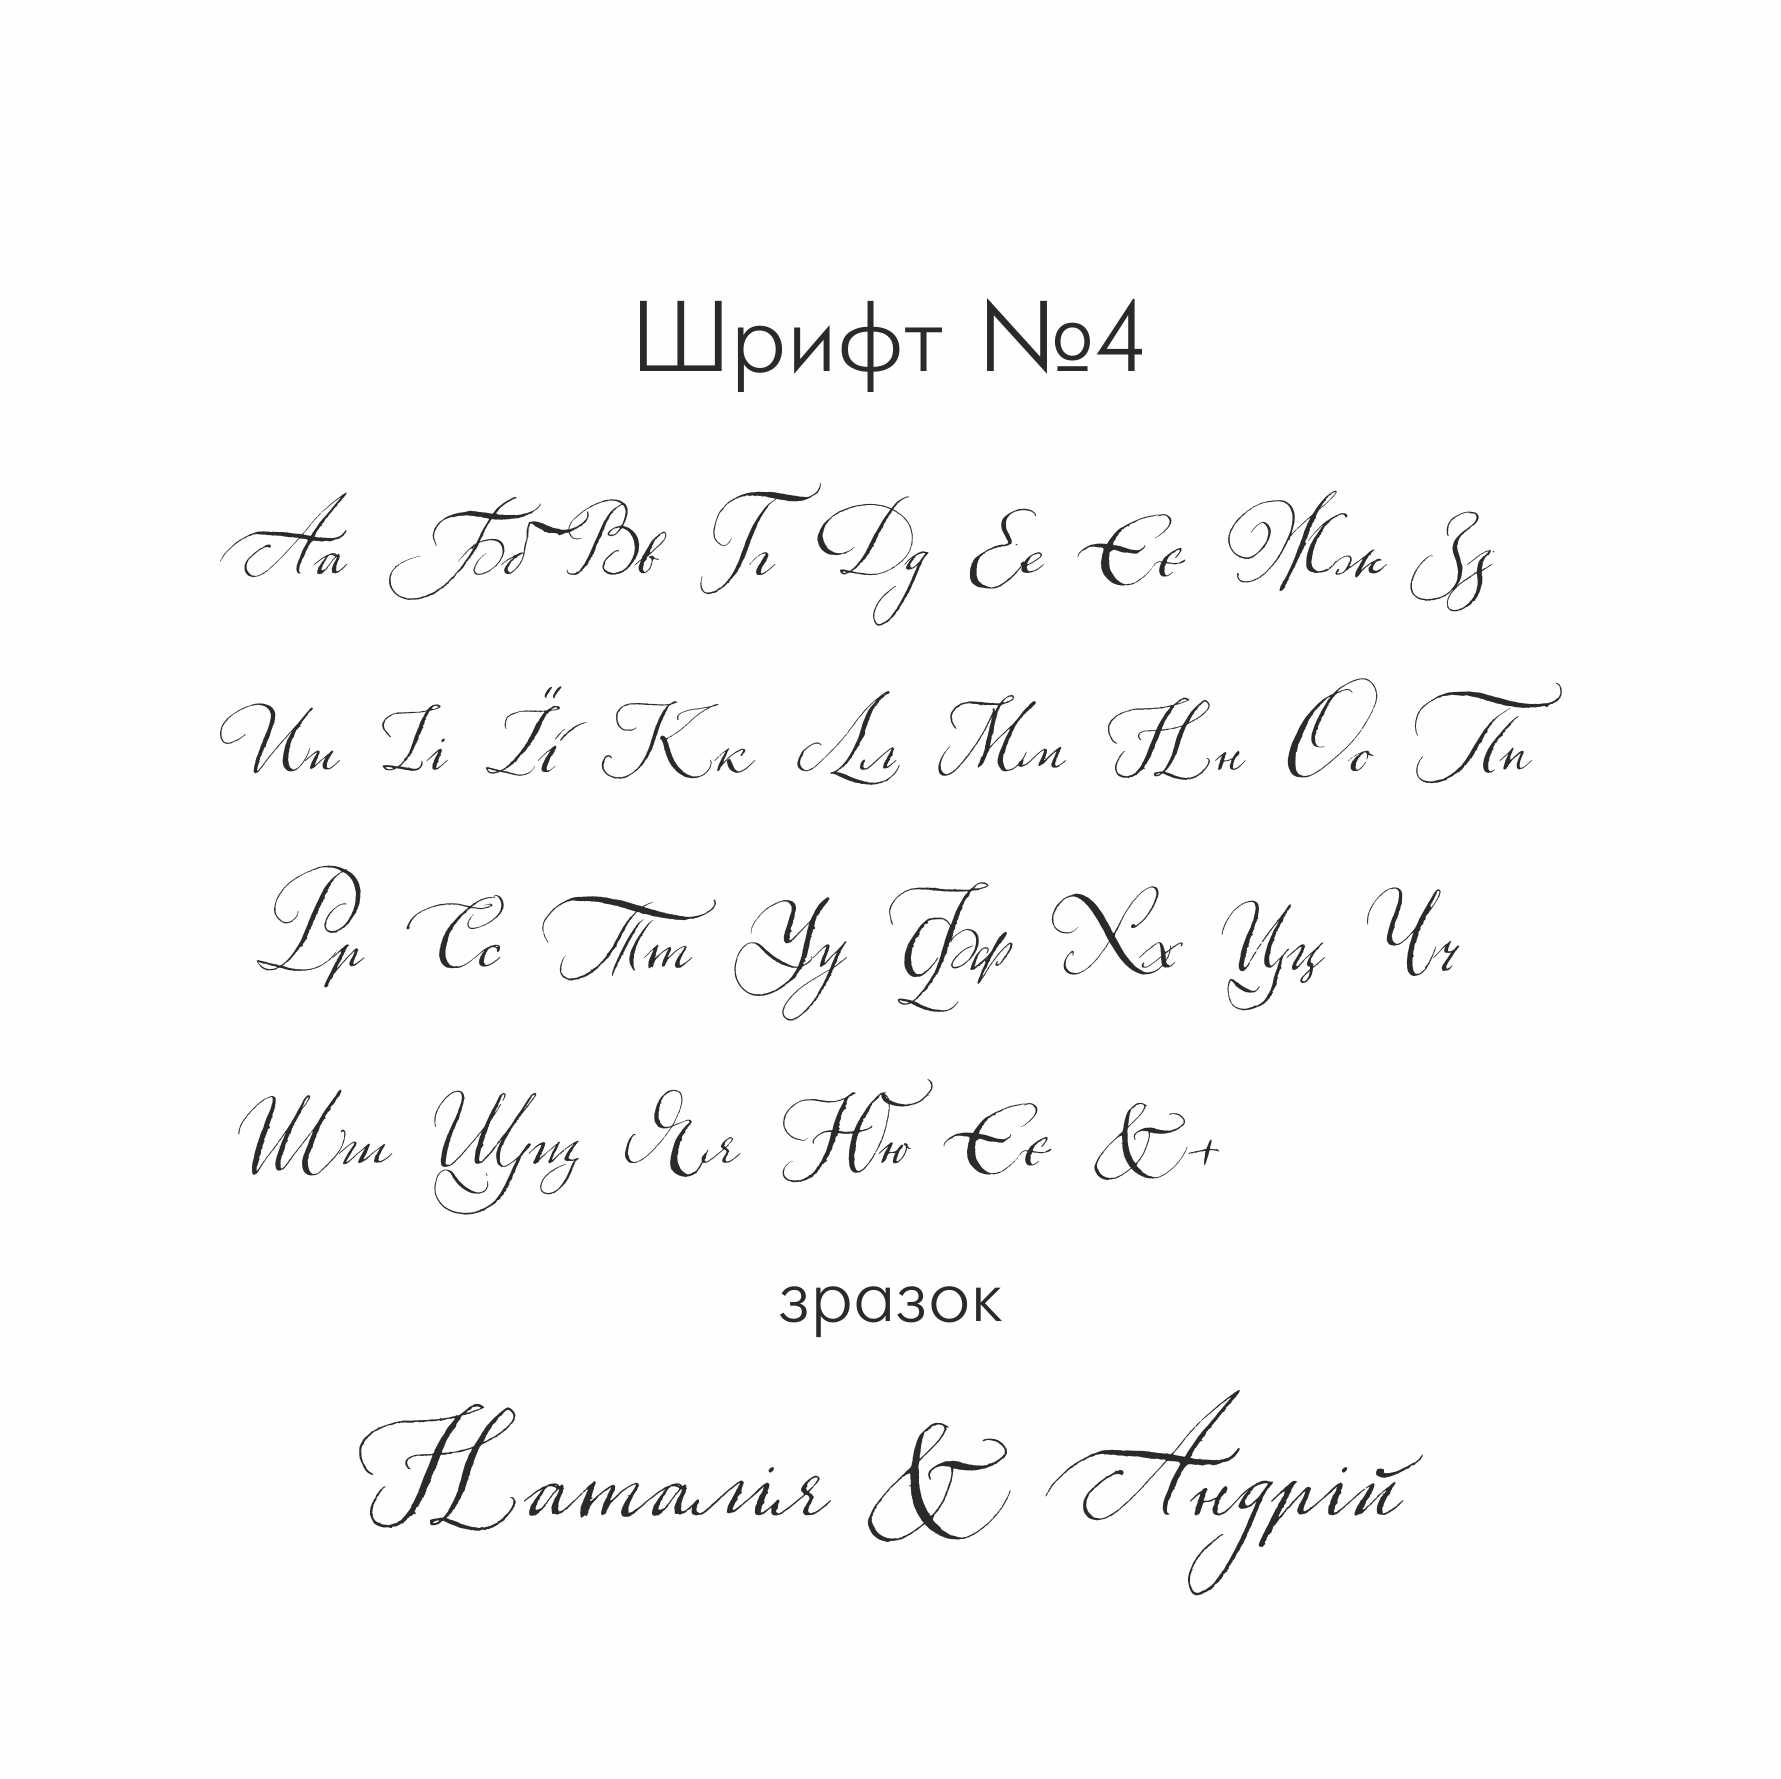 Шрифт №4
Аа Бб Вв Гг Дд Ее Єє Жж Зз
Ии Іі Її Кк Лл Мм Нн Оо Пп
Рр Сс Тт Уу Фф Хх Цц Чч
Шш Щщ Яя Юю Єє &+
зразок
Наталія & Андрій